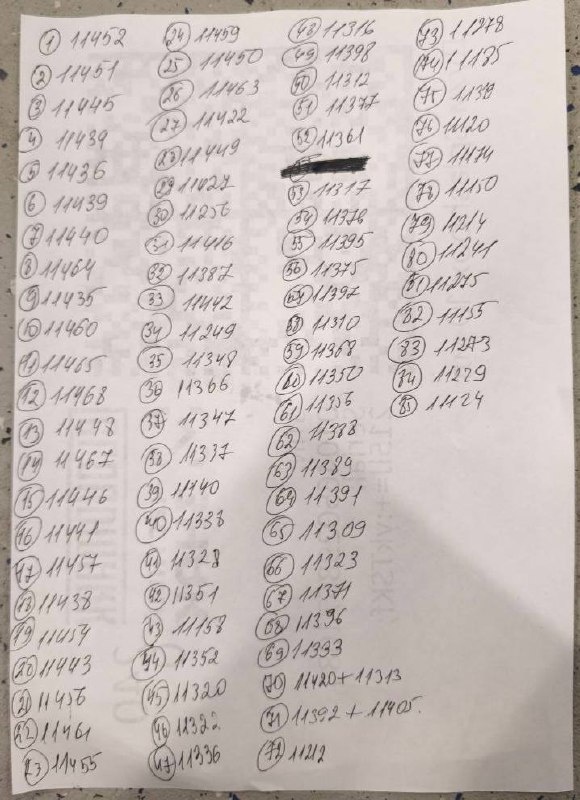 1 11452
2 11451
3 11445
4 11434
5 11436
6 11439
7 11440
8 11464
9 11435
10 11460
11 11465
12 11468
13 11448
14 11467
15 11446
16 11441
17 11457
18 11438
19 11454
20 11443
21 11456
22 11461
23 11455
24 11459
25 11450
26 11463
27 11422
28 11449
29 11427
30 11256
31 11416
32 11387
33 11442
34 11249
35 11348
36 11366
37 11347
38 11337
39 11140
40 11338
41 11328
42 11351
43 11158
44 11352
45 11320
46 11322
47 11336
48 11316
49 11398
50 11312
51 11377
52 11361
53 11317
54 11376
55 11395
56 11375
57 11397
58 11310
59 11368
60 11350
61 11356
62 11388
63 11389
64 11391
65 11309
66 11323
67 11371
68 11396
69 11393
70 11420+11313
71 11392 + 11405.
72 11212
73 11278
74 11185
75
76 11120
77 11174
78 11150
79 11214
80 11241
81 11275
82 11155
83 11273
84 11279
85 11124